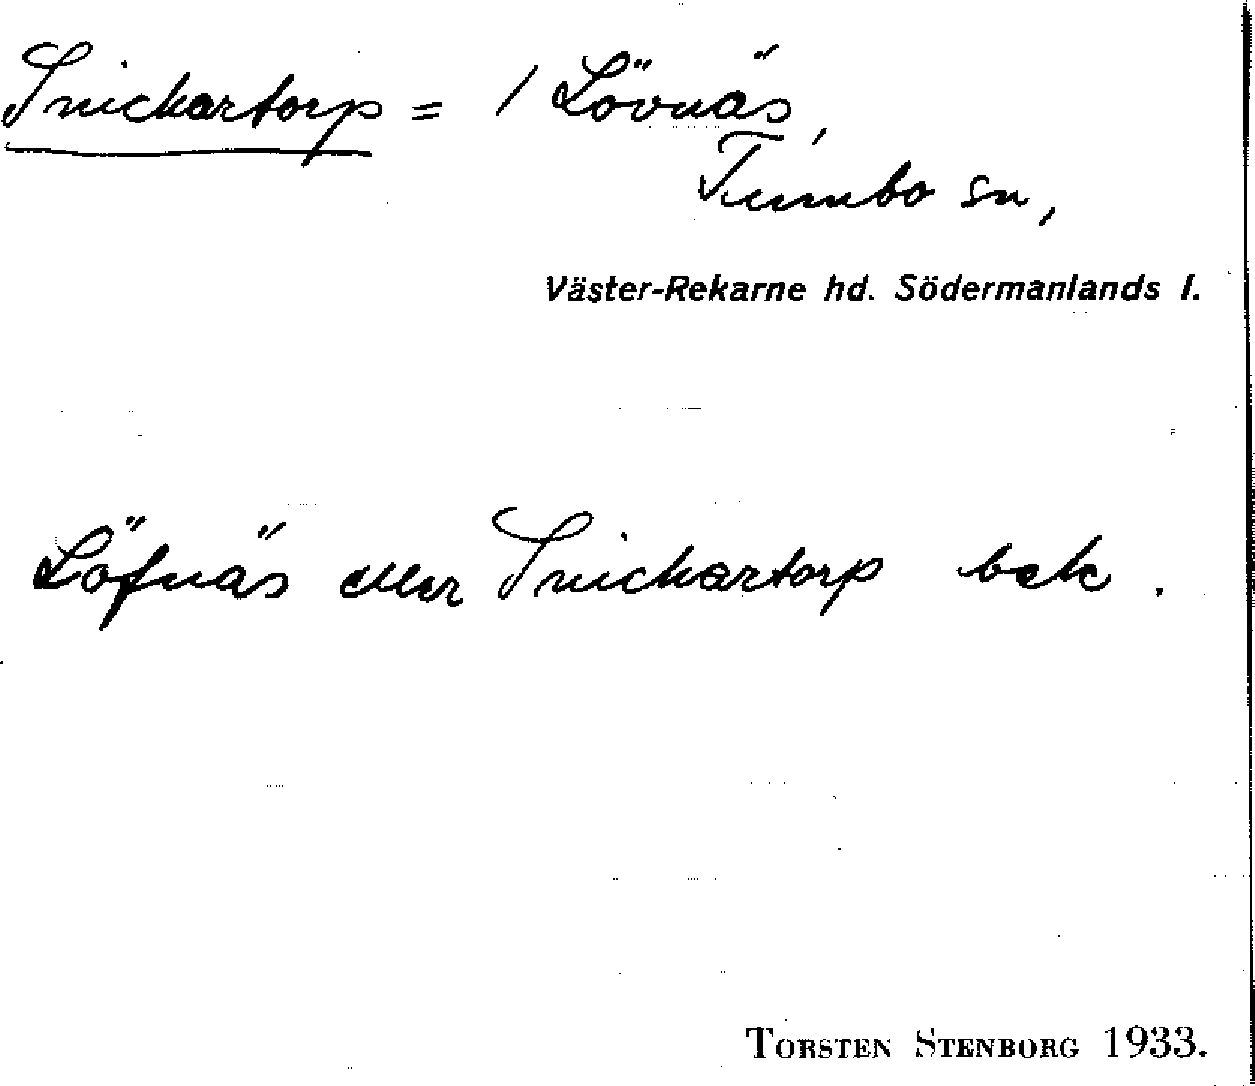 Snickartorp = / Lövnäs,
Tumbo sn,
Väster-Rekarne hd. Södermanlands l.
Löfnäs eller Snickartorp bek.
TORSTEN STENBORG 1933.